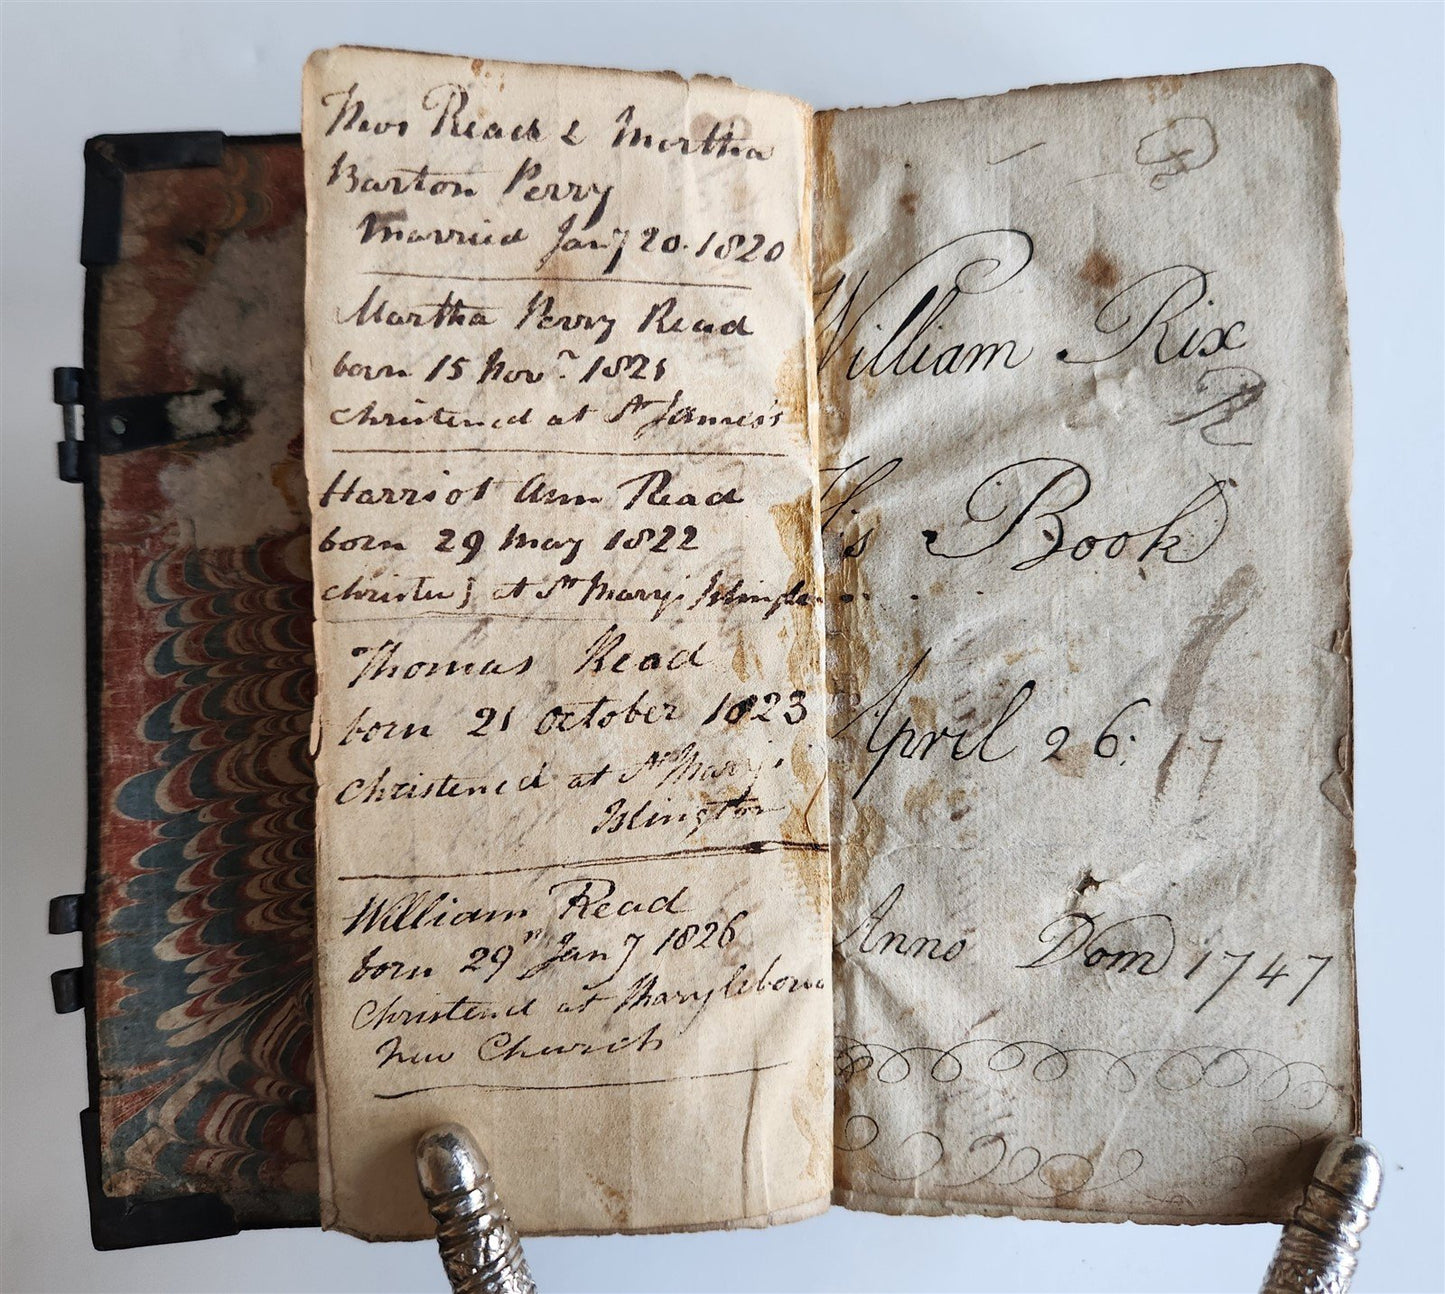 Thos Read & Martha
Barton Perry
Married Jany 20. 1820
Martha Perry Read
born 15 Novr. 1821
christened at St James's
Harriot Ann Read
born 29 May 1822
christen'd at St Mary's Islington
Thomas Read
born 21 October 1823
Christened at St Mary's
Islington
William Read
born 29th Jany 1826
Christened at Marylebone
New Church
William Rix
R
His Book
April 26: 17
Anno Dom 1747